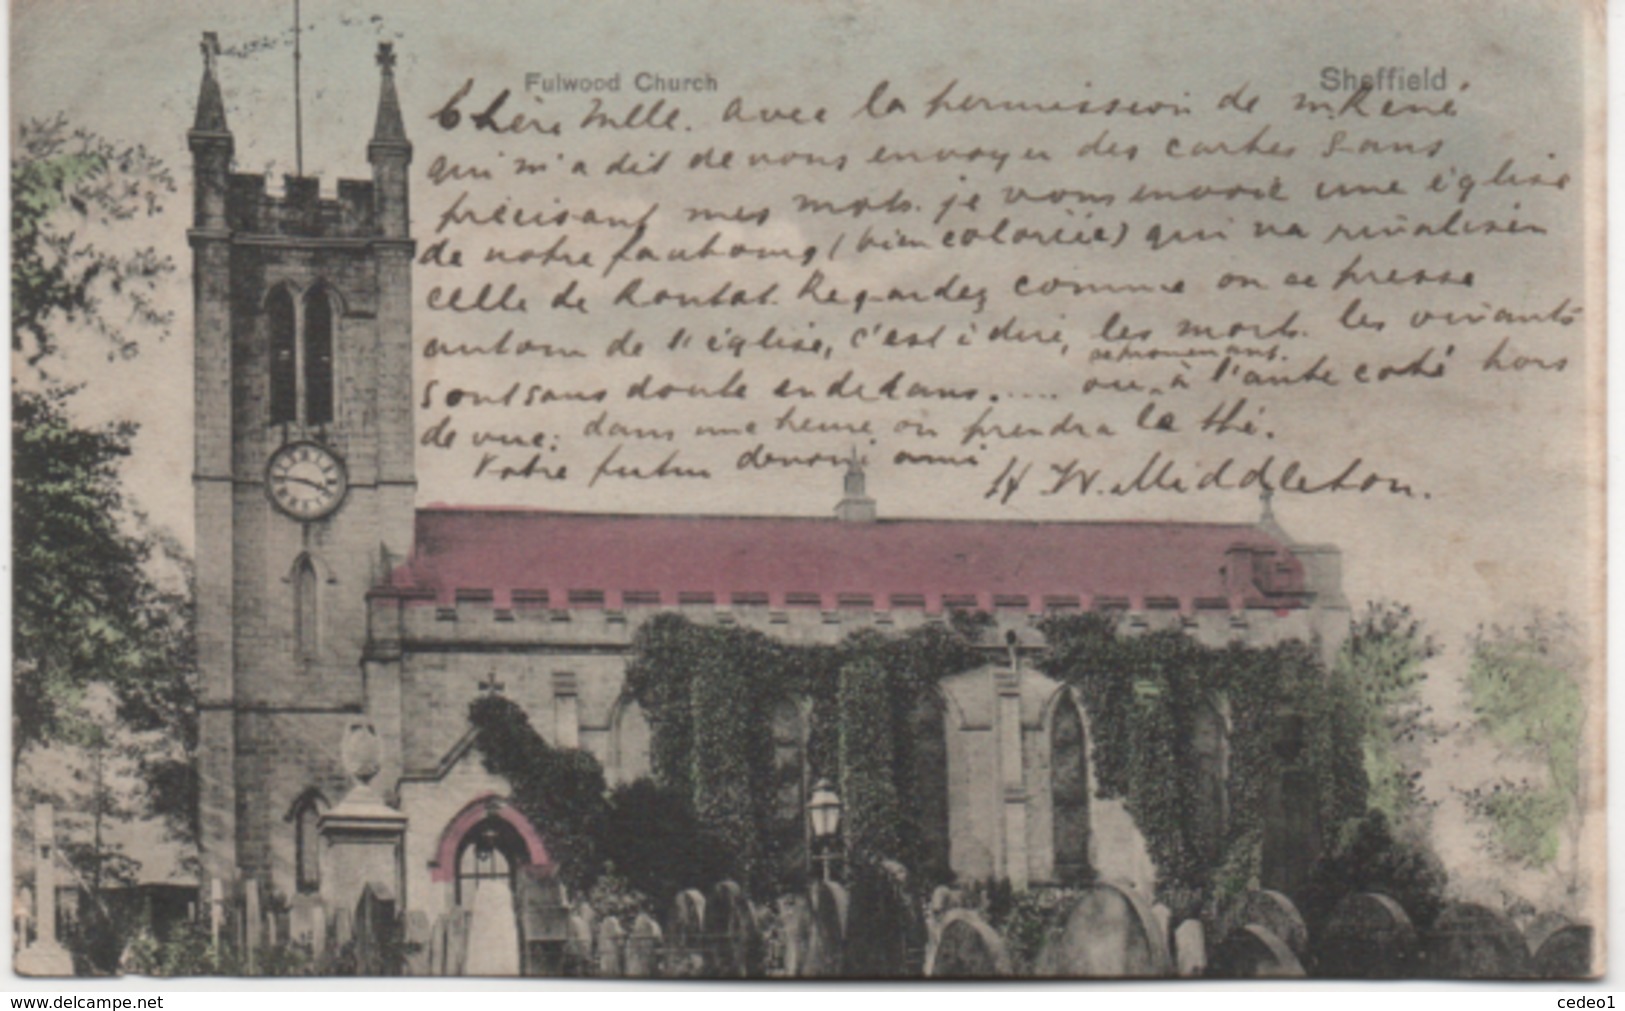 Fulwood Church
Sheffield
Chère Mlle. Avec la permission de M. René
qui m'a dit de vous envoyer des cartes sans
précisant mes mots. je vous envoie une église
de notre faubourg (bien coloriée) qui va rivaliser
celle de Regardez comme on se presse
autour de l'église, c'est à dire, les morts. les vivants
sont sans doute en dedans..... ou se promenant à l'autre coté hors
de vue: dans une heure on prendra le thé.
Votre futur devoué ami H. W. Middleton.
www.delcampe.net
cedeo1